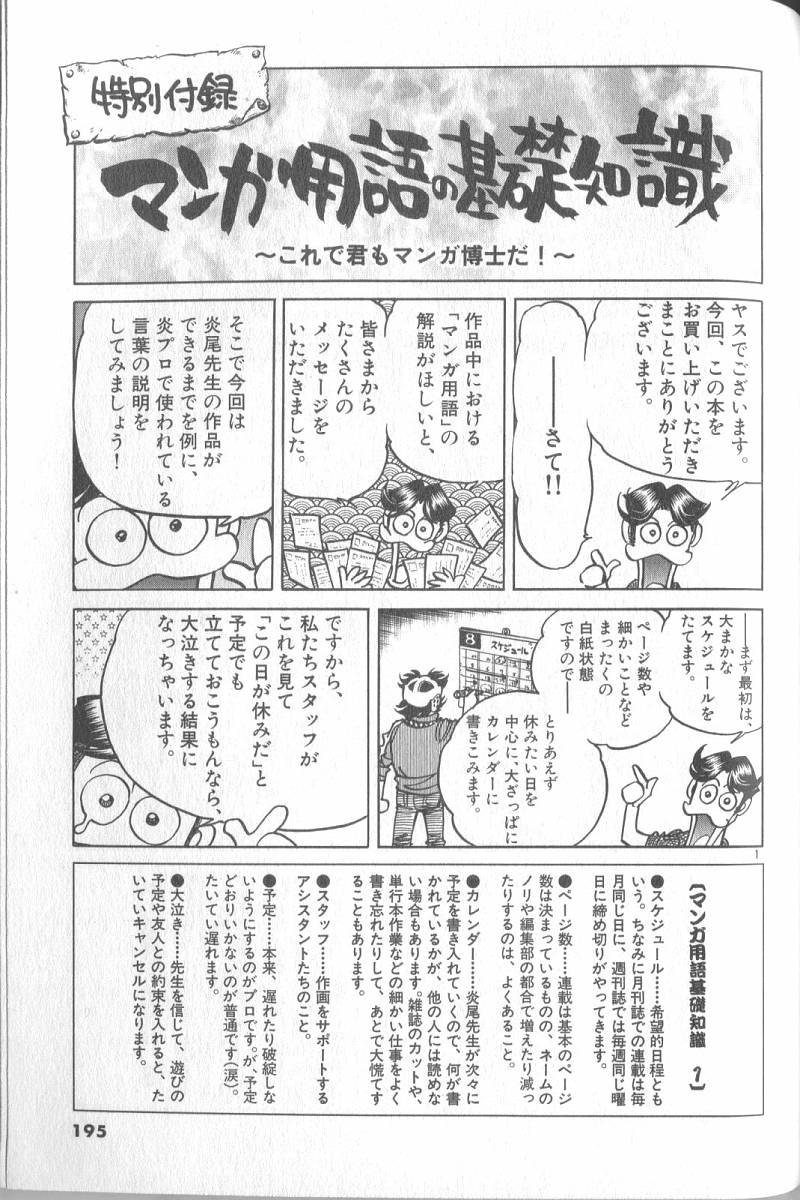 特別付録
マンガ用語の基礎知識
〜これで君もマンガ博士だ！〜
ヤスでございます。
今回、この本を
お買い上げいただき
まことにありがとう
ございます。
――さて!!
作品中における
「マンガ用語」の
解説がほしいと、
皆さまから
たくさんの
メッセージを
いただきました。
そこで今回は
炎尾先生の作品が
できるまでを例に、
炎プロで使われている
言葉の説明を
してみましょう！
――まず最初は、
大まかな
スケジュールを
たてます。
ページ数や
細かいことなど
まったくの
白紙状態
ですので――
とりあえず
休みたい日を
中心に、大ざっぱに
カレンダーに
書きこみます。
8
スケジュール
ですから、
私たちスタッフが
これを見て
「この日が休みだ」と
予定でも
立てておこうもんなら、
大泣きする結果に
なっちゃいます。
1
【マンガ用語基礎知識 1】
●スケジュール……希望的日程とも
いう。ちなみに月刊誌での連載は毎
月同じ日に、週刊誌では毎週同じ曜
日に締め切りがやってきます。
●ページ数……連載は基本のページ
数は決まっているものの、ネームの
ノリや編集部の都合で増えたり減っ
たりするのは、よくあること。
●カレンダー……炎尾先生が次々に
予定を書き入れていくので、何が書
かれているかが、他の人には読めな
い場合もあります。雑誌のカットや、
単行本作業などの細かい仕事をよく
書き忘れたりして、あとで大慌てす
ることもあります。
●スタッフ……作画をサポートする
アシスタントたちのこと。
●予定……本来、遅れたり破綻しな
いようにするのがプロです。が、予定
どおりいかないのが普通です（涙）。
たいてい遅れます。
●大泣き……先生を信じて、遊びの
予定や友人との約束を入れると、た
いていキャンセルになります。
195